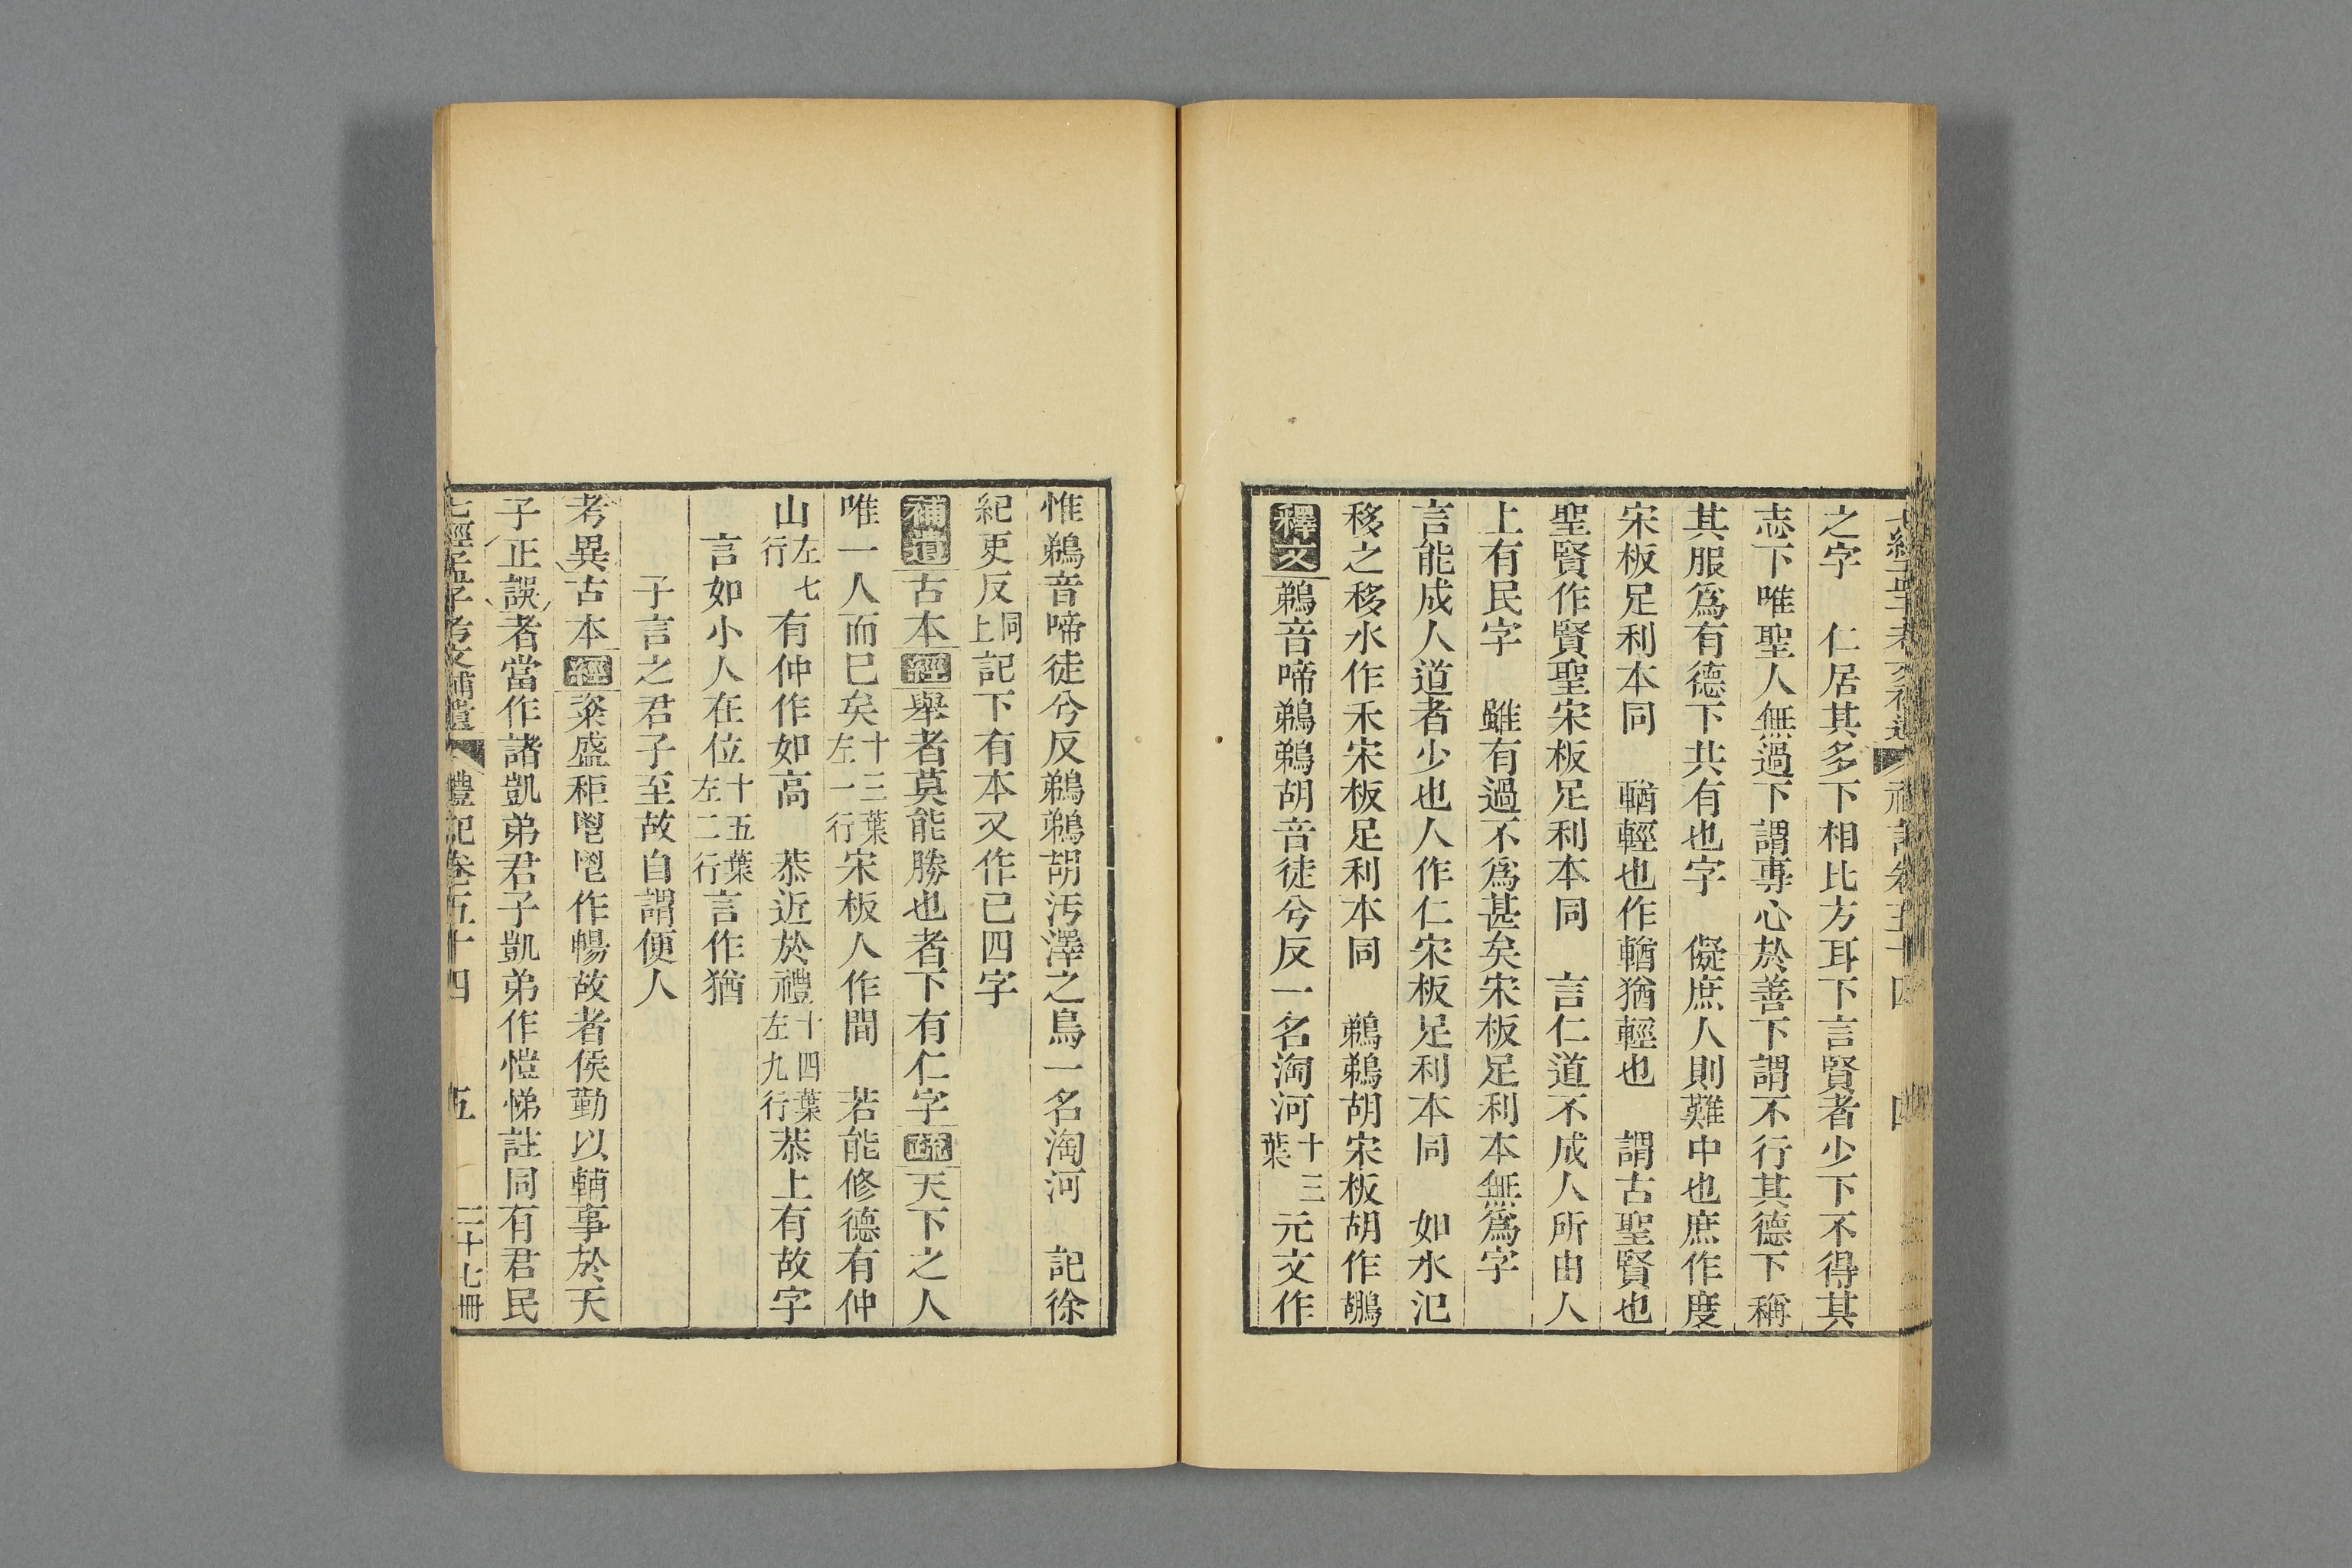 七經孟子考文補遺 禮記卷五十四 四
之字　仁居其多下相比方耳下言賢者少下不得其
志下唯聖人無過下謂專心於善下謂不行其德下稱
其服爲有德下共有也字　儗庶人則難中也庶作度
宋板足利本同　輶輕也作輶猶輕也　謂古聖賢也
聖賢作賢聖宋板足利本同　言仁道不成人所由人
上有民字　雖有過不爲甚矣宋板足利本無爲字
言能成人道者少也人作仁宋板足利本同　如水氾
移之移水作禾宋板足利本同　鵜鵜胡宋板胡作鶘
釋文 鵜音啼鵜鵜胡音徒兮反一名淘河十三葉元文作
惟鵜音啼徒兮反鵜鵜胡汚澤之鳥一名淘河　記徐
紀吏反同上記下有本又作已四字
補遺 古本 經 舉者莫能勝也者下有仁字 疏 天下之人
唯一人而已矣十三葉左一行宋板人作間　若能修德有仲
山左七行有仲作如高　恭近於禮十四葉左九行恭上有故字
言如小人在位十五葉左二行言作猶
子言之君子至故自謂便人
考異古本 經 粢盛秬鬯鬯作暢故者侯勤以輔事於天
子正誤者當作諸凱弟君子凱弟作愷悌註同有君民
七經孟子考文補遺 禮記卷五十四 五 二十七冊